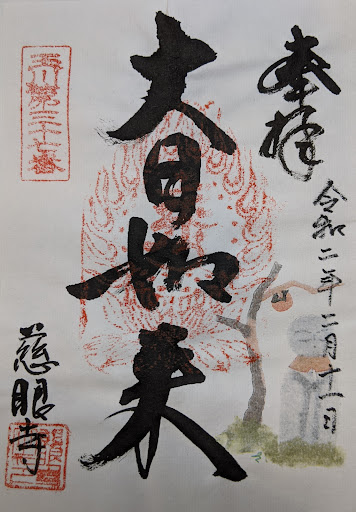 奉拝
令和二年二月十一日
大日如来
玉川第三十七番
慈眼寺